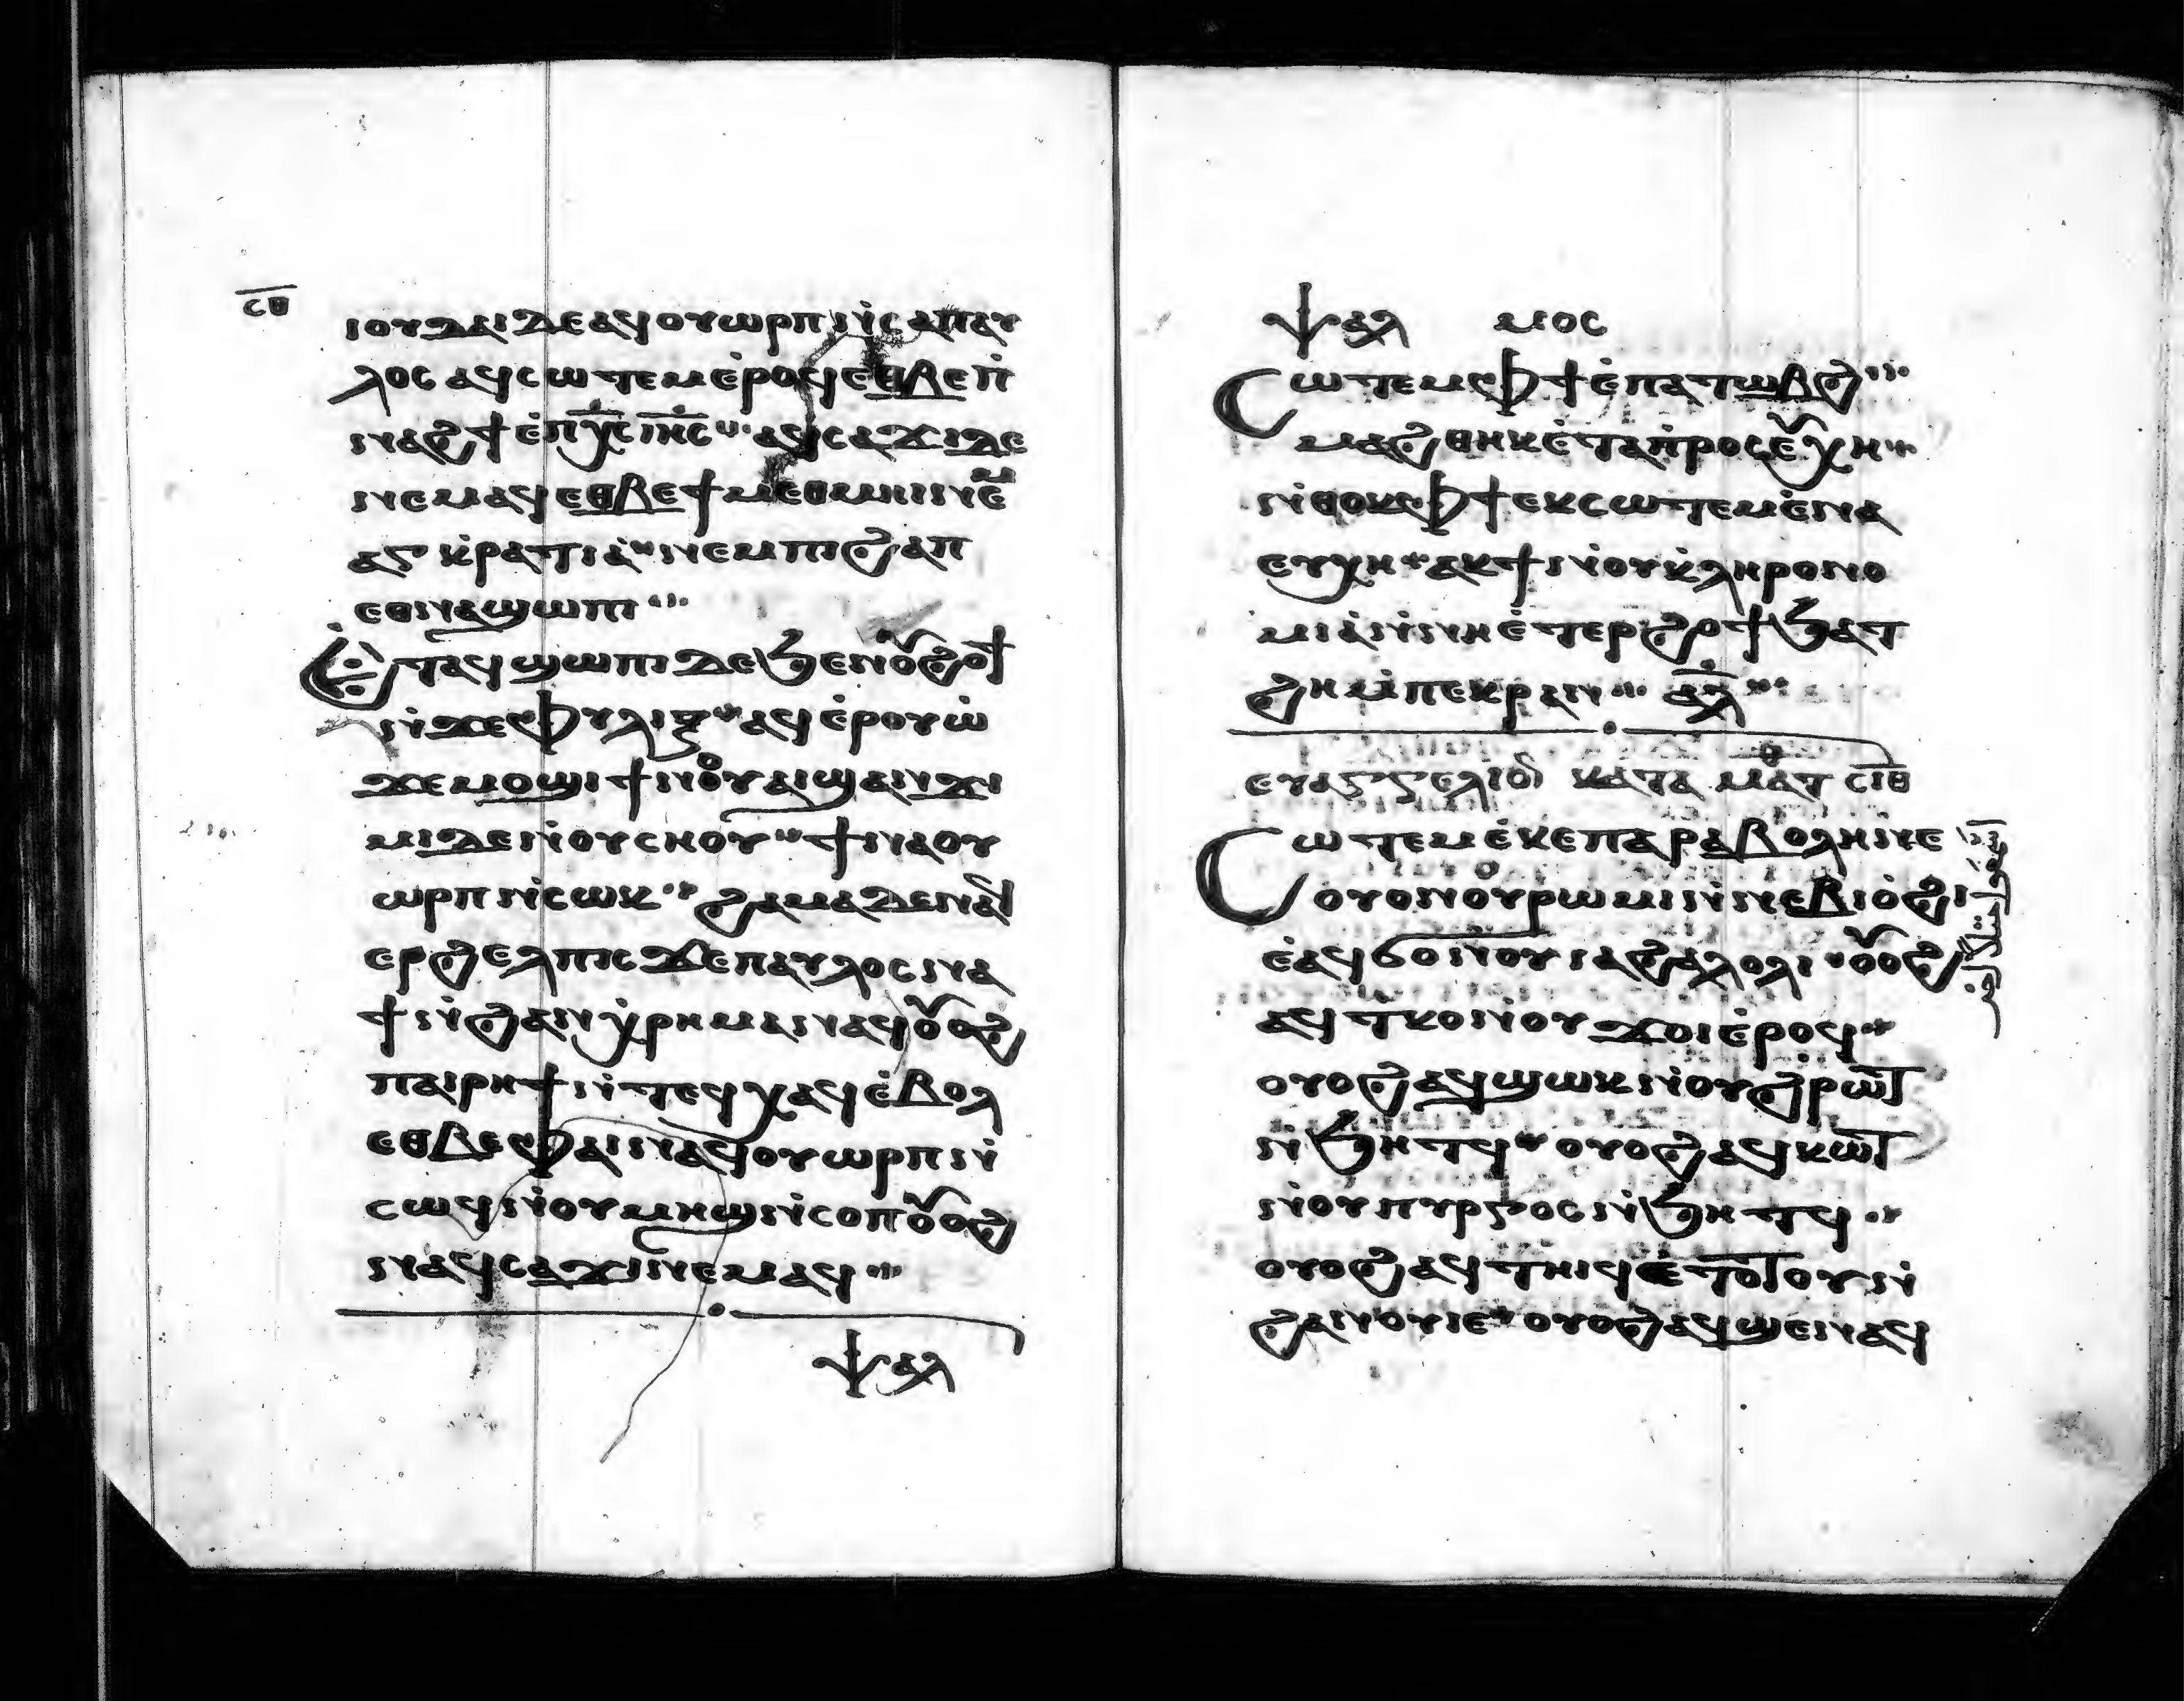 ⲥⲑ
ⲓⲟⲩⲇⲁⲓ ⲇⲉ ⲁϥⲟⲩⲱⲣⲡ ⲛ̀ⲥⲁ ⲡⲁⲩ
ⲗⲟⲥ ⲁϥⲥⲱⲧⲉⲙ ⲉ̀ⲣⲟϥ ⲉⲑⲃⲉ ⲡⲓ̀
ⲛⲁϩϯ ⲉ̀ⲡⲭ̅ⲥ̅ ⲓⲏ̅ⲥ̅ ⲁϥⲥⲁϫⲓ ⲇⲉ
ⲛⲉⲙⲁϥ ⲉⲑⲃⲉ ϯⲙⲉⲑⲙⲏⲓ ⲛⲉⲙ
ⲁⲅⲕⲣⲁⲧⲓⲁ̀ ⲛⲉⲙ ⲡⲓϩⲁⲡ
ⲉⲑⲛⲁϣⲱⲡⲓ
Ⲉ̀ⲧⲁϥϣⲱⲡⲓ ⲇⲉ ϧⲉⲛ ⲟⲩϩⲟϯ
ⲛ̀ϫⲉ ⲫⲩⲗⲓⲝ ⲁϥⲉ̀ⲣⲟⲩⲱ̀
ϫⲉ ⲙⲟϣⲓ ϯⲛⲟⲩ ⲁⲓϣⲁⲛϫⲓ
ⲙⲓ ⲇⲉ ⲛ̀ⲟⲩⲥⲏⲟⲩ ϯⲛⲁⲟⲩ
ⲱⲣⲡ ⲛ̀ⲥⲱⲕ ϩⲁⲙⲁ ⲇⲉ ⲛⲁϥ
ⲉⲣϩⲉⲗⲡⲓⲥ ϫⲉ ⲡⲁⲩⲗⲟⲥ ⲛⲁ
ϯ ⲛ̀ϩⲁⲛⲭⲣⲏⲙⲁ ⲛⲁϥ ⲟⲩⲟϩ
ⲡⲁⲓⲣⲏϯ ⲛ̀ⲧⲉϥⲭⲁϥ ⲉ̀ⲃⲟⲗ
ⲉⲑⲃⲉ ⲫⲁⲓ ⲛⲁϥⲟⲩⲱⲣⲡ ⲛ̀
ⲥⲱϥ ⲛ̀ⲟⲩⲙⲏϣ ⲛ̀ⲥⲟⲡ ⲟⲩⲟϩ
ⲛⲁϥⲥⲁϫⲓ ⲛⲉⲙⲁϥ
ⲯⲁⲗ
ⲯⲁⲗ ⲙⲟⲥ
Ⲥⲱⲧⲉⲙ ⲫϯ ⲉ̀ⲡⲁⲧⲱⲃϩ
ⲙⲁϩⲑⲏⲕ ⲉ̀ⲧⲁⲡⲣⲟⲥⲉⲩⲭⲏ
ⲛ̀ⲑⲟⲕ ⲫϯ ⲉⲕⲥⲱⲧⲉⲙ ⲉ̀ⲛⲁ
ⲉⲩⲭⲏ ⲁⲕϯ ⲛ̀ⲟⲩⲕ̀ⲗⲏⲣⲟⲛⲟ
ⲙⲓⲁ̀ ⲛ̀ⲛⲏ ⲉ̀ⲧⲉⲣϩⲟϯ ϧⲁⲧ
ϩⲏ ⲙ̀ⲡⲉⲕⲣⲁⲛ ⲁⲗ
ⲉⲩⲁⲅⲅⲉⲗⲓⲟⲛ ⲕⲁⲧⲁ ⲙⲁⲧ ⲥⲓⲑ
Ⲥⲱⲧⲉⲙ ⲉ̀ⲕⲉⲡⲁⲣⲁⲃⲟⲗⲏ ⲛⲉ
ⲟⲩⲟⲛ ⲟⲩⲣⲱⲙⲓ ⲛ̀ⲛⲉⲃⲓⲟ̀ϩⲓ
ⲉ̀ⲁϥϭⲟ ⲛ̀ⲟⲩⲓⲁϩⲁⲗⲟⲗⲓ ⲟⲩⲟϩ
ⲁϥⲧⲕⲟ ⲛ̀ⲟⲩϫⲟⲓ ⲉ̀ⲣⲟϥ
ⲟⲩⲟϩ ⲁϥϣⲱⲕ ⲛ̀ⲟⲩϩⲣⲱⲧ
ⲛ̀ϧⲏⲧϥ ⲟⲩⲟϩ ⲁϥⲕⲱⲧ
ⲛ̀ⲟⲩⲡⲩⲣⲅⲟⲥ ⲛ̀ϧⲏⲧϥ
ⲟⲩⲟϩ ⲁϥⲧⲏⲓϥ ⲉ̀ⲧⲟⲧⲟⲩ ⲛ̀
ϩⲁⲛⲟⲩⲓⲉ ⲟⲩⲟϩ ⲁϥϣⲉⲛⲁϥ